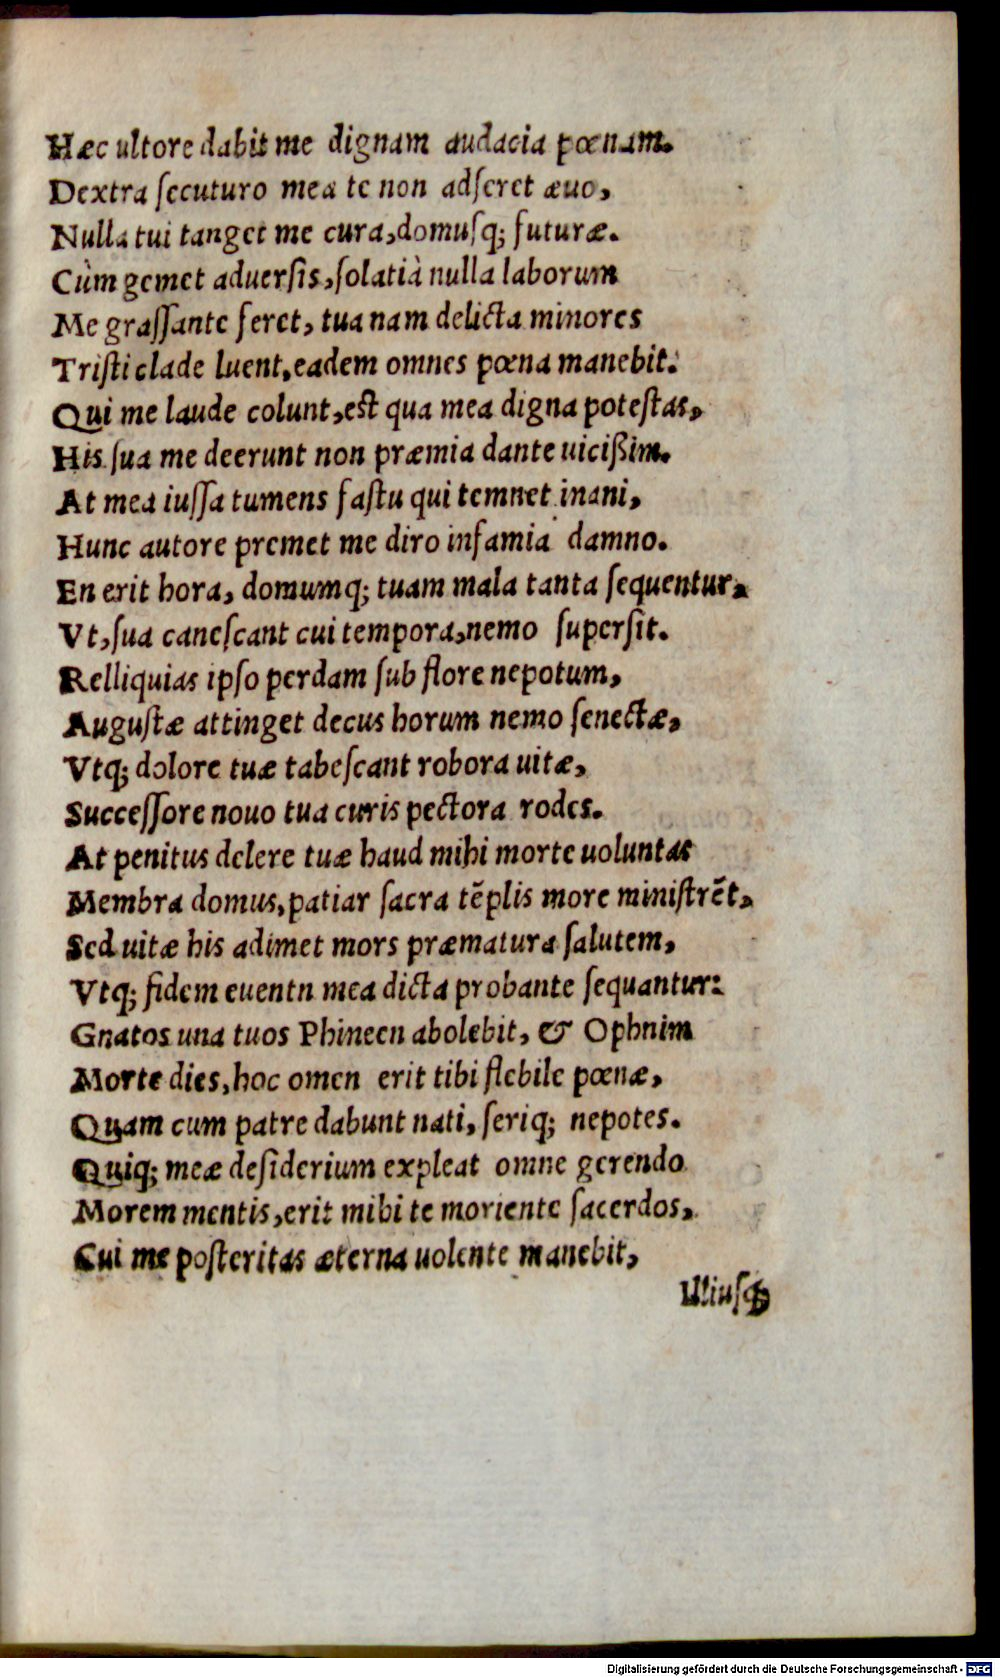 Hæc ultore dabit me dignam audacia pœnam.
Dextra ſecuturo mea te non adſeret æuo,
Nulla tui tanget me cura, domuſq; futuræ.
Cùm gemet aduerſis, ſolatià nulla laborum
Me graſſante feret, tua nam delicta minores
Triſti clade luent, eadem omnes pœna manebit:
Qui me laude colunt, eſt qua mea digna poteſtas,
His ſua me deerunt non præmia dante uicißim.
At mea iuſſa tumens faſtu qui temnet inani,
Hunc autore premet me diro infamia damno.
En erit hora, domumq; tuam mala tanta ſequentur,
Vt, ſua caneſcant cui tempora, nemo ſuperſit.
Relliquias ipſo perdam ſub flore nepotum,
Auguſtæ attinget decus horum nemo ſenectæ,
Vtq; dolore tuæ tabeſcant robora uitæ,
Succeſſore nouo tua curis pectora rodes.
At penitus delere tuæ haud mihi morte uoluntas
Membra domus, patiar ſacra tẽplis more miniſtrẽt,
Sed uitæ his adimet mors præmatura ſalutem,
Vtq; fidem euentn mea dicta probante ſequantur:
Gnatos una tuos Phineen abolebit, & Ophnim
Morte dies, hoc omen erit tibi flebile pœnæ,
Quam cum patre dabunt nati, ſeriq; nepotes.
Quiq; meæ deſiderium expleat omne gerendo
Morem mentis, erit mihi te moriente ſacerdos,
Cui me poſteritas æterna uolente manebit,
Illiuſq;
Digitalisierung gefördert durch die Deutsche Forschungsgemeinschaft - DFG